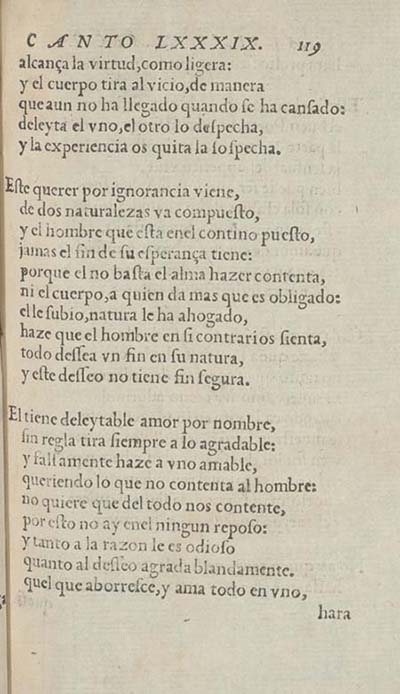 CANTO LXXXIX. 119
alcança la virtud, como ligera:
y el cuerpo tira al vicio, de manera
que aun no ha llegado quando ſe ha canſado:
deleyta el vno, el otro lo deſpecha,
y la experiencia os quita la ſoſpecha.
Eſte querer por ignorancia viene,
de dos naturalezas va compueſto,
y el hombre que eſta enel contino pueſto,
jamas el fin de ſu eſperança tiene:
porque el no baſta el alma hazer contenta,
ni el cuerpo, a quien da mas que es obligado:
elle ſubio, natura le ha ahogado,
haze que el hombre en ſi contrarios ſienta,
todo deſſea vn fin en ſu natura,
y eſte deſſeo no tiene fin ſegura.
El tiene deleytable amor por nombre,
ſin regla tira ſiempre a lo agradable:
y falſamente haze a vno amable,
queriendo lo que no contenta al hombre:
no quiere que del todo nos contente,
por eſto no ay enel ningun repoſo:
y tanto a la razon le es odioſo
quanto al deſſeo agrada blandamente.
quel que aborreſce, y ama todo en vno,
hara